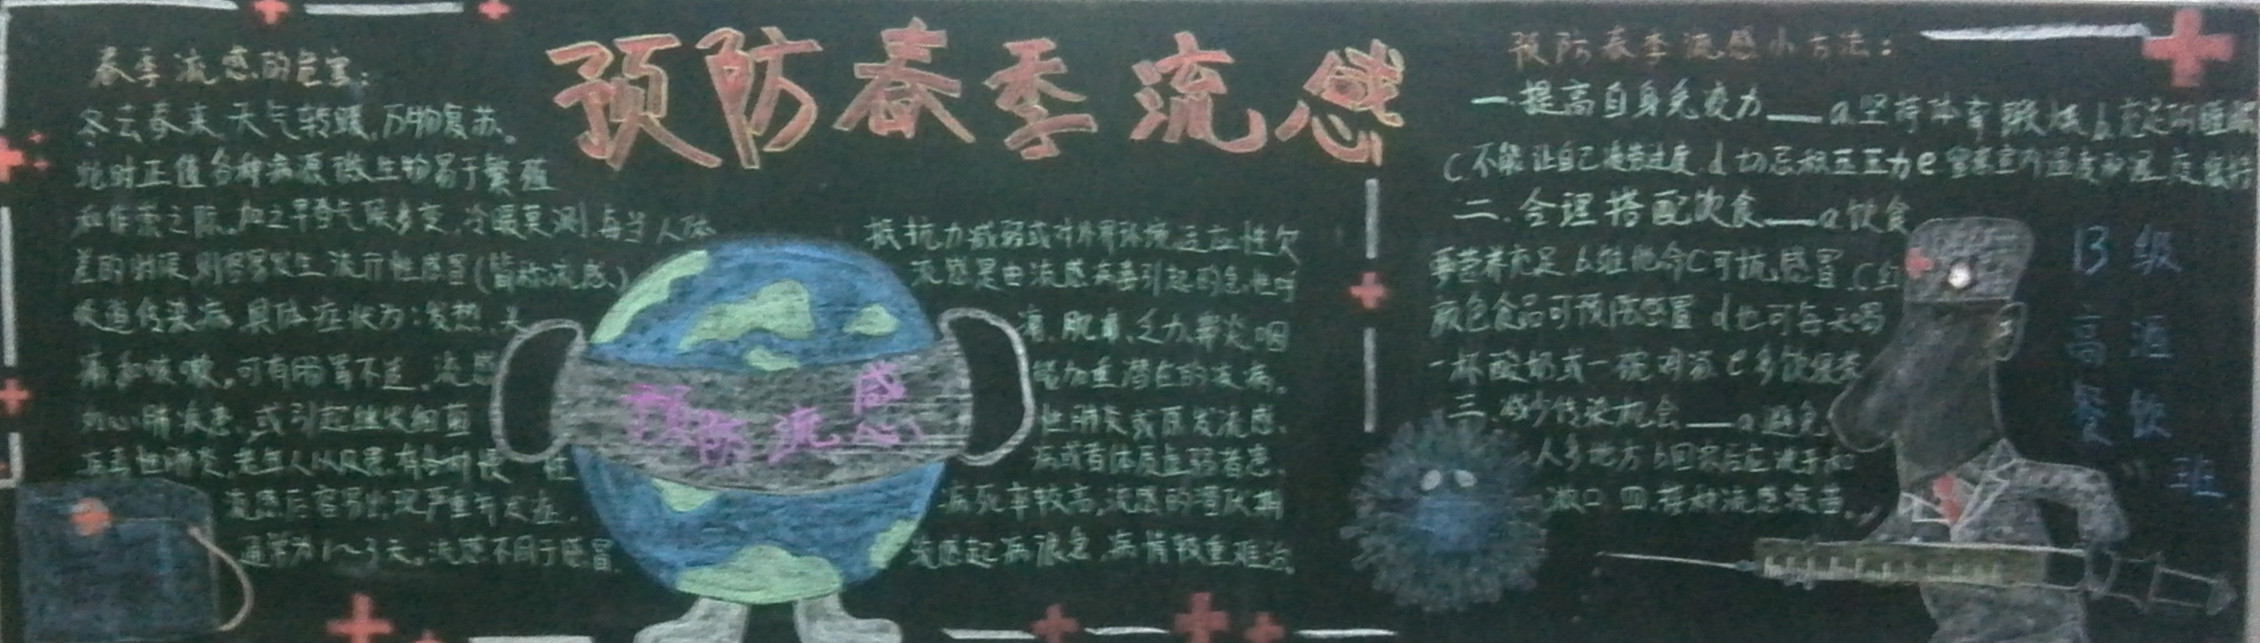 预防春季流感
春季流感的危害：
冬去春来，天气转暖，万物复苏。
此时正值各种病原微生物易于繁殖
和传染之际，加之早春气候多变，冷暖莫测，每当人体
抵抗力减弱或对外界环境适应性欠
差的时候，则容易发生流行性感冒(皆称流感。)
流感是由流感病毒引起的急性呼
吸道传染病，具体症状为：发热、头
痛、肌痛、乏力、鼻炎、咽
痛和咳嗽，可有肠胃不适，流感
能加重潜在的疾病。
如心肺疾患，或引起继发细菌
性肺炎或原发流感
病毒性肺炎，老年人以及患有各种慢性
病或者体质虚弱者患
流感后容易出现严重并发症，
病死率较高，流感的潜伏期
通常为1~3天。流感不同于感冒
流感起病很急，病情较重难治。
预防流感
预防春季流感小方法：
一.提高自身免疫力——a坚持体育锻炼b充足的睡眠
c不能让自己疲劳过度 d切忌积压压力e室内温度和湿度
二.合理搭配饮食——a饮食
要营养充足b维他命C可抗感冒 C红
颜色食品可预防感冒 d也可每天喝
一杯酸奶或一碗鸡汤 e多饮绿茶
三.减少传染机会——a避免
人多地方b回家后应洗手和
漱口 四.接种流感疫苗。
13级
高酒
餐饮
班